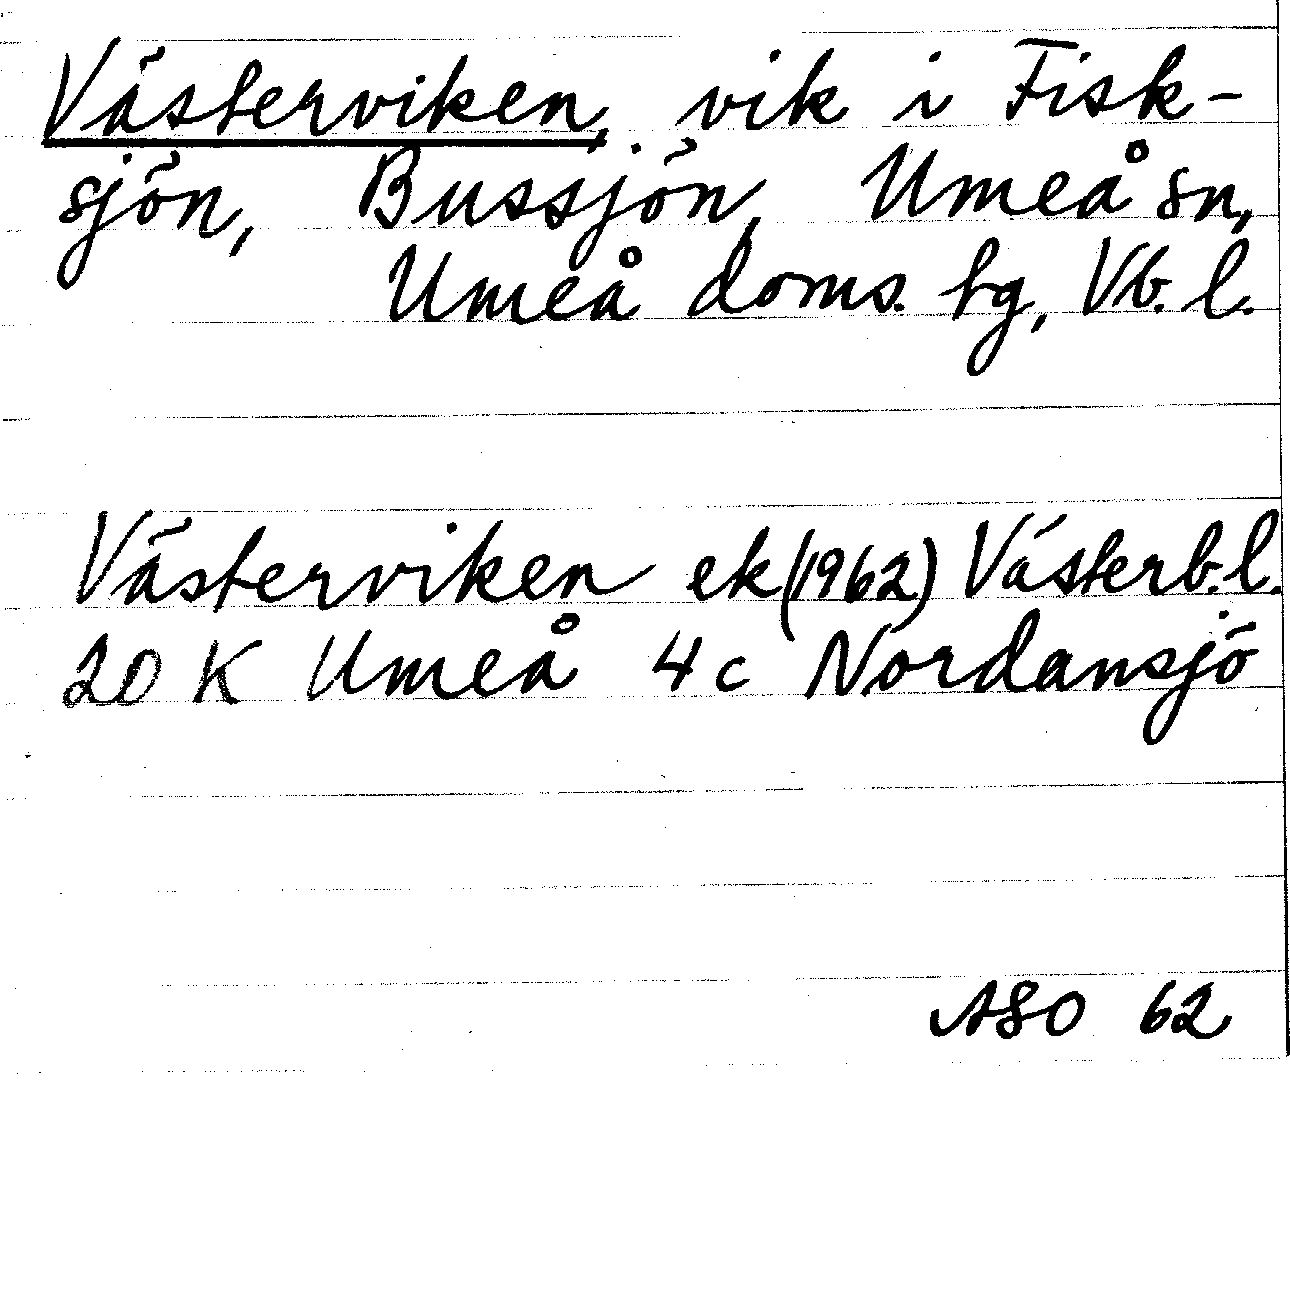 Västerviken, vik i Fisk-
sjön, Bussjön, Umeå sn,
Umeå doms. tg, Vb. l.
Västerviken ek (1962) Västerb. l.
20 K Umeå 4c Nordansjö
ASO 62